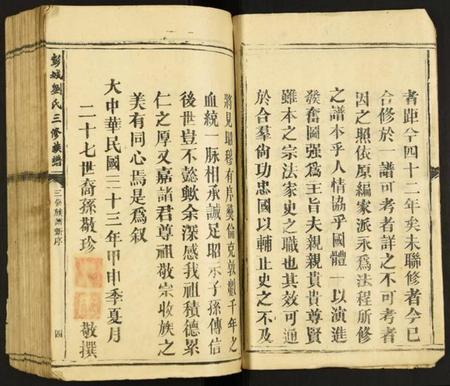 者距今四十二年矣未聯修者今已
合修於一譜可考者詳之不可考者
因之照依原編家派永爲法程所修
之譜本乎人情協乎國體一以演進
發奮圖強爲主旨夫親親貴貴尊賢
雖本之宗法家史之職也其效可通
於合羣尙功忠國以輔正史之不及
彭城劉氏三修族譜
三修族譜新序
四
將見昭穆有序彝倫克敦繼千年之
血統一脉相承誠足昭示子孫傳信
後世豈不懿歟余深感我祖積德累
仁之厚又嘉諸君尊祖敬宗收族之
美有同心焉是爲叙
大中華民國三十三年甲申季夏月
二十七世裔孫敬珍 敬撰